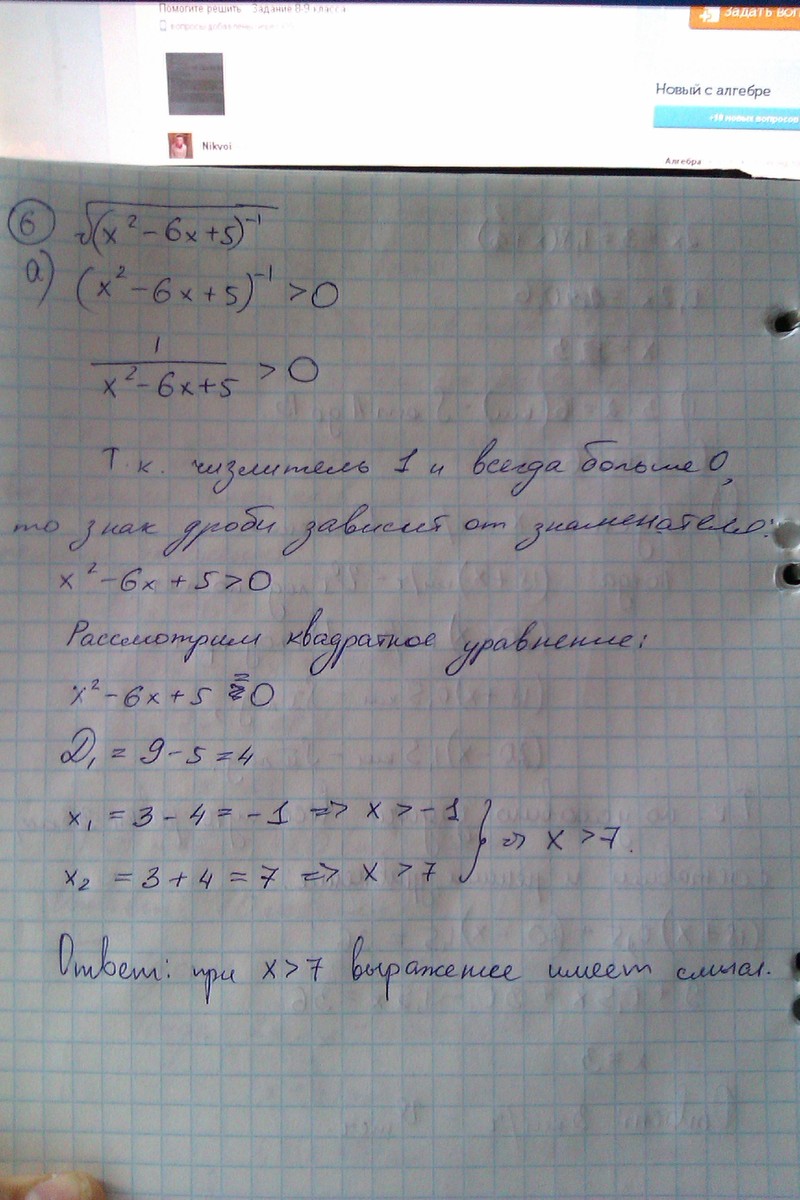 Помогите решить Задание 8-9 класса
Задать воп
Новый с алгебре
+10 новых вопросов
Nikvoi
Алгебра
6 √(x² - 6x + 5)⁻¹
а) (x² - 6x + 5)⁻¹ > 0
1 / (x² - 6x + 5) > 0
Т.к. числитель 1 и всегда больше 0,
то знак дроби зависит от знаменателя:
x² - 6x + 5 > 0
Рассмотрим квадратное уравнение:
x² - 6x + 5 = 0
D₁ = 9 - 5 = 4
x₁ = 3 - 4 = -1 => x > -1
x₂ = 3 + 4 = 7 => x > 7 } => x > 7.
Ответ: при x > 7 выражение имеет смысл.